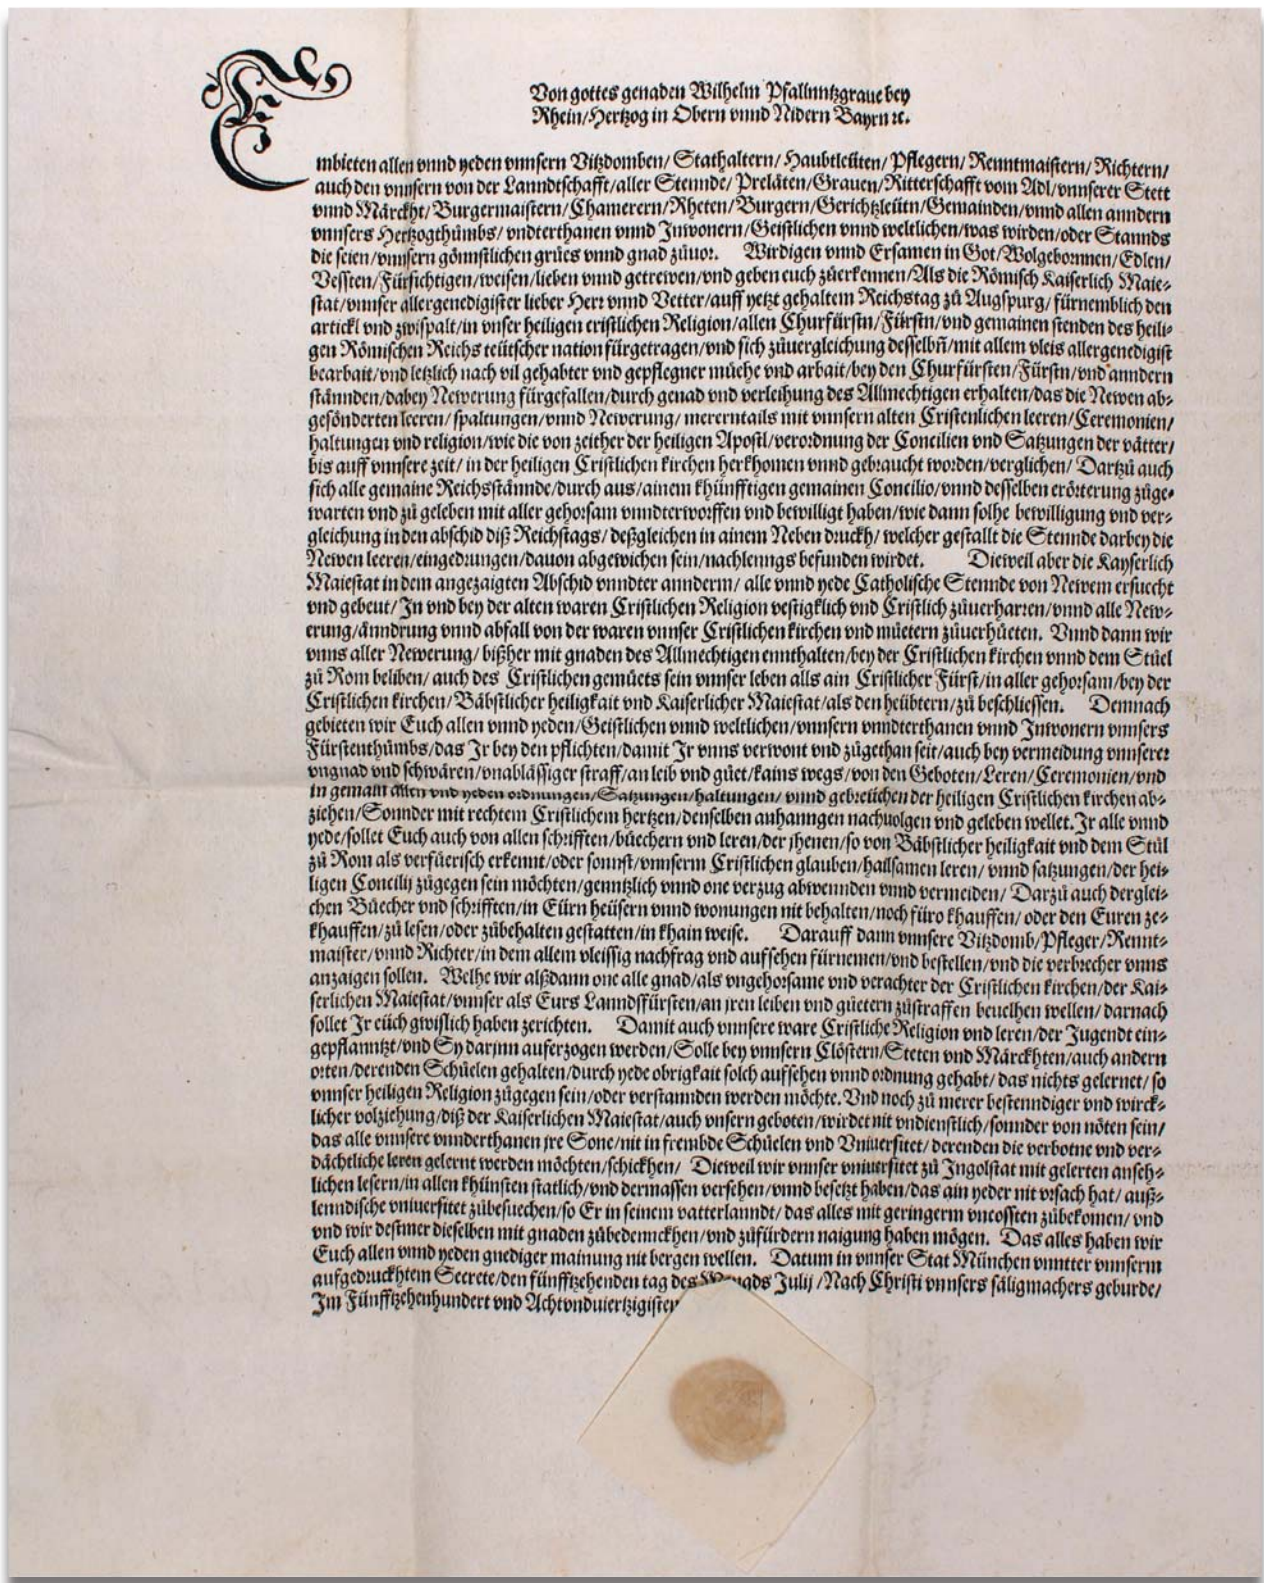 Von gottes genaden Wilhelm Pfallnntzgraue bey
Rhein/Hertzog in Obern vnnd Nidern Bayrn ꝛc.
Embieten allen vnnd yeden vnnsern Vitzdomben/ Stathaltern/ Haubtleüten/ Pflegern/ Renntmaistern/ Richtern/
auch den vnnsern von der Lanndtschafft/aller Stennde/ Prelaͤten/Grauen/Ritterschafft vom Adl/vnnserer Stett
vnnd Maͤrckht/ Burgermaistern/Chamerern/Rheten/Burgern/Gerichtzleütn/Gemainden/vnnd allen anndern
vnnsers Hertzogthumbs/ vndterthanen vnnd Inwonern/Geistlichen vnnd weltlichen/was wirden/oder Stannds
die seien/vnnsern gönnstlichen gruͤes vnnd gnad zuͤuor. Wirdigen vnnd Ersamen in Got/Wolgebornnen/Edlen/
Vessten/Fürsichtigen/weisen/lieben vnnd getrewen/vnd geben euch zuͤerkennen/Als die Römisch Kaiserlich Maie-
stat/vnnser allergenedigister lieber Herr vnnd Vetter/auff yetzt gehaltem Reichstag zuͤ Augspurg/ fürnemblich den
artickl vnd zwispalt/in vnser heiligen cristlichen Religion/allen Churfürstn/Fürstn/vnd gemainen stenden des heili-
gen Römischen Reichs teütscher nation fürgetragen/vnd sich zuͤuergleichung desselbn̄/mit allem vleis allergenedigist
bearbait/vnd letzlich nach vil gehabter vnd gepflegner müehe vnd arbait/bey den Churfürsten/Fürstn/vnd anndern
staͤnnden/dabey Newerung fürgefallen/durch genad vnd verleihung des Allmechtigen erhalten/das die Newen ab-
gesönderten leeren/ spaltungen/vnnd Newerung/ merernntails mit vnnsern alten Cristenlichen leeren/Ceremonien/
haltungen vnd religion/wie die von zeither der heiligen Apostl/verordnung der Concilien vnd Satzungen der vaͤtter/
bis auff vnnsere zeit/ in der heiligen Cristlichen kirchen herkhomen vnnd gebraucht worden/verglichen/ Dartzuͤ auch
sich alle gemaine Reichsstaͤnnde/durch aus/ainem khünfftigen gemainen Concilio/vnnd desselben erörterung zuͤge-
warten vnd zuͤ geleben mit aller gehorsam vnndterworffen vnd bewilligt haben/wie dann solhe bewilligung vnd ver-
gleichung in den abschid diß Reichstags/ deßgleichen in ainem Neben druckh/ welcher gestallt die Stennde darbey die
Newen leeren/eingedrungen/dauon abgewichen sein/nachlenngs befunden wirdet. Dieweil aber die Kayserlich
Maiestat in dem angezaigten Abschid vnndter annderm/ alle vnnd yede Catholische Stennde von Newem ersuecht
vnd gebeut/ In vnd bey der alten waren Cristlichen Religion vestigklich vnd Cristlich zuͤuerharren/vnnd alle New-
erung/aͤnndrung vnnd abfall von der waren vnnser Cristlichen kirchen vnd müetern zuͤuerhüeten. Vnnd dann wir
vnns aller Newerung/ bißher mit gnaden des Allmechtigen ennthalten/bey der Cristlichen kirchen vnnd dem Stuͤel
zuͤ Rom beliben/ auch des Cristlichen gemüets sein vnnser leben alls ain Cristlicher Fürst/in aller gehorsam/bey der
Cristlichen kirchen/ Baͤbstlicher heiligkait vnd Kaiserlicher Maiestat/als den heübtern/zuͤ beschliessen. Demnach
gebieten wir Euch allen vnnd yeden/Geistlichen vnnd weltlichen/vnnsern vnndterthanen vnnd Inwonern vnnsers
Fürstenthuͤmbs/das Ir bey den pflichten/damit Ir vnns verwont vnd zuͤgethan seit/auch bey vermeidung vnnserer
vngnad vnd schwaͤren/vnablaͤssiger straff/an leib vnd guͤet/kains wegs/von den Geboten/Leren/Ceremonien/vnd
in gemain allen vnd yeden ordnungen/Satzungen/haltungen/ vnnd gebreüchen der heiligen Cristlichen kirchen ab-
ziehen/Sonnder mit rechtem Cristlichem hertzen/denselben anhanngen nachuolgen vnd geleben wellet. Ir alle vnnd
yede/sollet Euch auch von allen schrifften/büechern vnd leren/der jhenen/so von Baͤbstlicher heiligkait vnd dem Stuͤl
zuͤ Rom als verfüerisch erkennt/oder sonnst/vnnserm Cristlichen glauben/hailsamen leren/ vnnd satzungen/der hei-
ligen Concilij zuͤgegen sein möchten/genntzlich vnnd one verzug abwennden vnnd vermeiden/ Darzuͤ auch derglei-
chen Büecher vnd schrifften/in Eürn heüsern vnnd wonungen nit behalten/noch füro khauffen/ oder den Euren ze-
khauffen/zuͤ lesen/oder zuͤbehalten gestatten/in khain weise. Darauff dann vnnsere Vitzdomb/Pfleger/Rennt-
maister/vnnd Richter/in dem allem vleissig nachfrag vnd aufsehen fürnemen/vnd bestellen/vnd die verbrecher vnns
anzaigen sollen. Welhe wir alßdann one alle gnad/als vngehorsame vnd verachter der Cristlichen kirchen/der Kai-
serlichen Maiestat/vnnser als Eurs Lanndsfürsten/an jren leiben vnd güetern zuͤstraffen beuelhen wellen/ darnach
sollet Ir eüch gwißlich haben zerichten. Damit auch vnnsere ware Cristliche Religion vnd leren/der Jugendt ein-
gepflanntzt/vnd Sy darjnn auferzogen werden/Solle bey vnnsern Clöstern/Steten vnd Maͤrckhten/auch andern
orten/derenden Schuͤelen gehalten/durch yede obrigkait solch aufsehen vnnd ordnung gehabt/ das nichts gelernet/ so
vnnser heiligen Religion zuͤgegen sein/oder verstannden werden möchte. Vnd noch zuͤ merer bestenndiger vnd wirck-
licher volziehung/diß der Kaiserlichen Maiestat/auch vnsern geboten/wirdet nit vndienstlich/sonnder von nöten sein/
das alle vnnsere vnnderthanen jre Sone/nit in frembde Schuͤelen vnd Vniuersitet/ derenden die verbotne vnd ver-
daͤchtliche leren gelernt werden möchten/schickhen/ Dieweil wir vnnser vniuersitet zuͤ Ingolstat mit gelerten anseh-
lichen lesern/in allen khünsten statlich/vnd dermassen versehen/vnnd besetzt haben/das ain yeder nit vrsach hat/ auß-
lenndische vniuersitet zuͤbesuechen/so Er in seinem vatterlanndt/ das alles mit geringerm vncossten zuͤbekomen/ vnd
vnd wir destmer dieselben mit gnaden zuͤbedennckhen/vnd zuͤfürdern naigung haben mögen. Das alles haben wir
Euch allen vnnd yeden gnediger mainung nit bergen wellen. Datum in vnnser Stat München vnntter vnnserm
aufgedruckhtem Secrete/den fünfftzehenden tag des Monads Julij /Nach Christi vnnsers saͤligmachers geburde/
Im Fünfftzehenhundert vnd Achtvnduiertzigisten